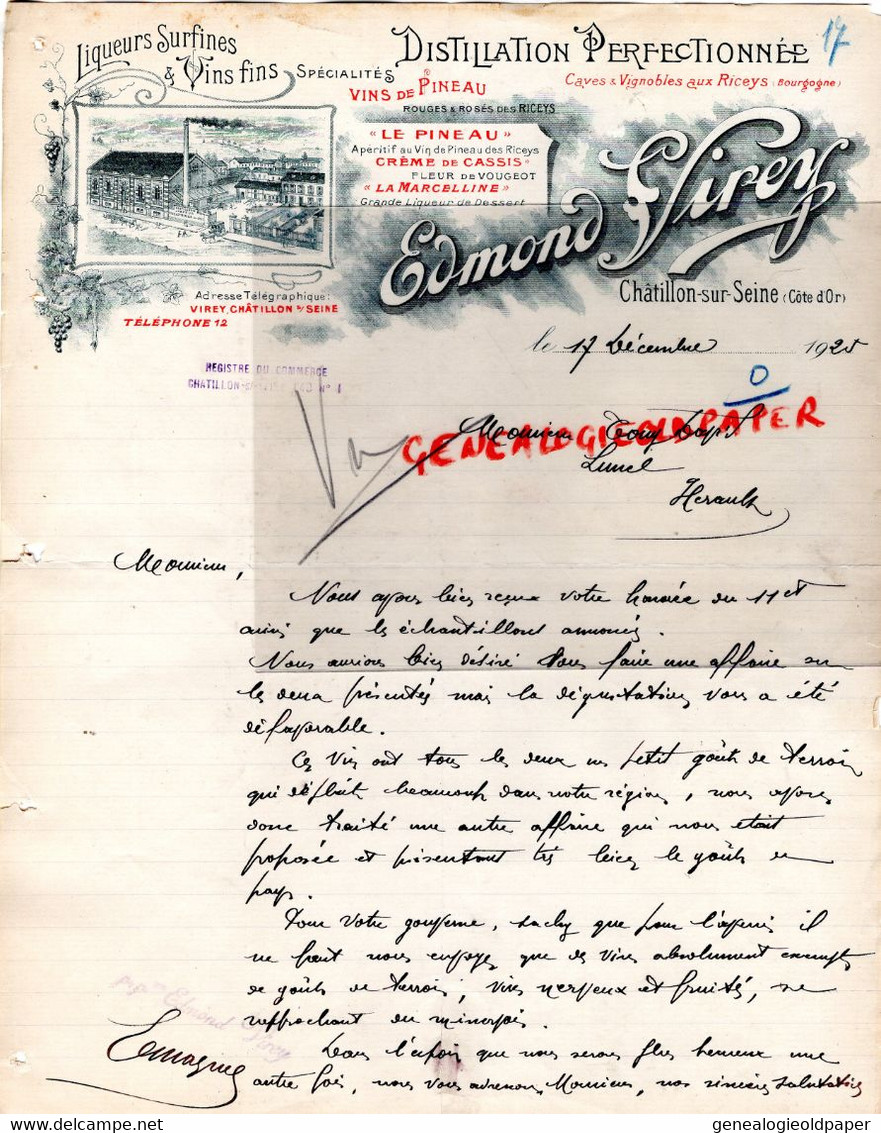 Liqueurs Surfines
& Vins fins
SPÉCIALITÉS
VINS DE PINEAU
ROUGES & ROSÉS DES RICEYS
DISTILLATION PERFECTIONNÉE
17
Caves & Vignobles aux Riceys (Bourgogne)
« LE PINEAU »
Apéritif au Vin de Pineau des Riceys
CRÈME DE CASSIS
FLEUR DE VOUGEOT
"LA MARCELLINE"
Grande Liqueur de Dessert
Edmond Virey
Châtillon-sur-Seine (Côte d'Or)
Adresse Télégraphique:
VIREY, CHÂTILLON s/SEINE
TÉLÉPHONE 12
le 17 Décembre 1925
REGISTRE DU COMMERCE
CHATILLON-
GENEALOGIEOLDPAPER
Monsieur
Lunel
Herault
Monsieur,
Nous avons bien reçu votre honorée du 11 ct
ainsi que les échantillons annoncés.
Nous aurions bien désiré vous faire une affaire sur
les deux présentés mais la dégustation vous a été
défavorable.
Ces Vins ont tous les deux un petit goût de terroir
qui déplaît beaucoup dans notre région, nous avons
donc traité une autre affaire qui nous était
proposée et présentant très bien le goût du
pays.
Pour votre gouverne, sachez que pour l'avenir il
ne faut nous envoyer que des vins absolument exempts
de goût de terroir, vins nerveux et fruités, se
rapprochant du minervois.
Dans l'espoir que nous serons plus heureux une
autre fois, nous vous adressons, Monsieur, nos sincères salutations
Edmond Virey
genealogieoldpaper